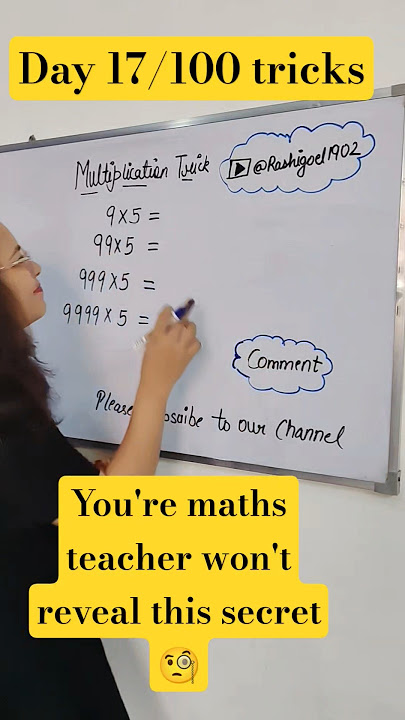 Day 17/100 tricks
Multiplication Trick
@Rashigoel1902
9×5 =
99×5 =
999×5 =
9999×5 =
Comment
to our Channel
You're maths
teacher won't
reveal this secret
🧐